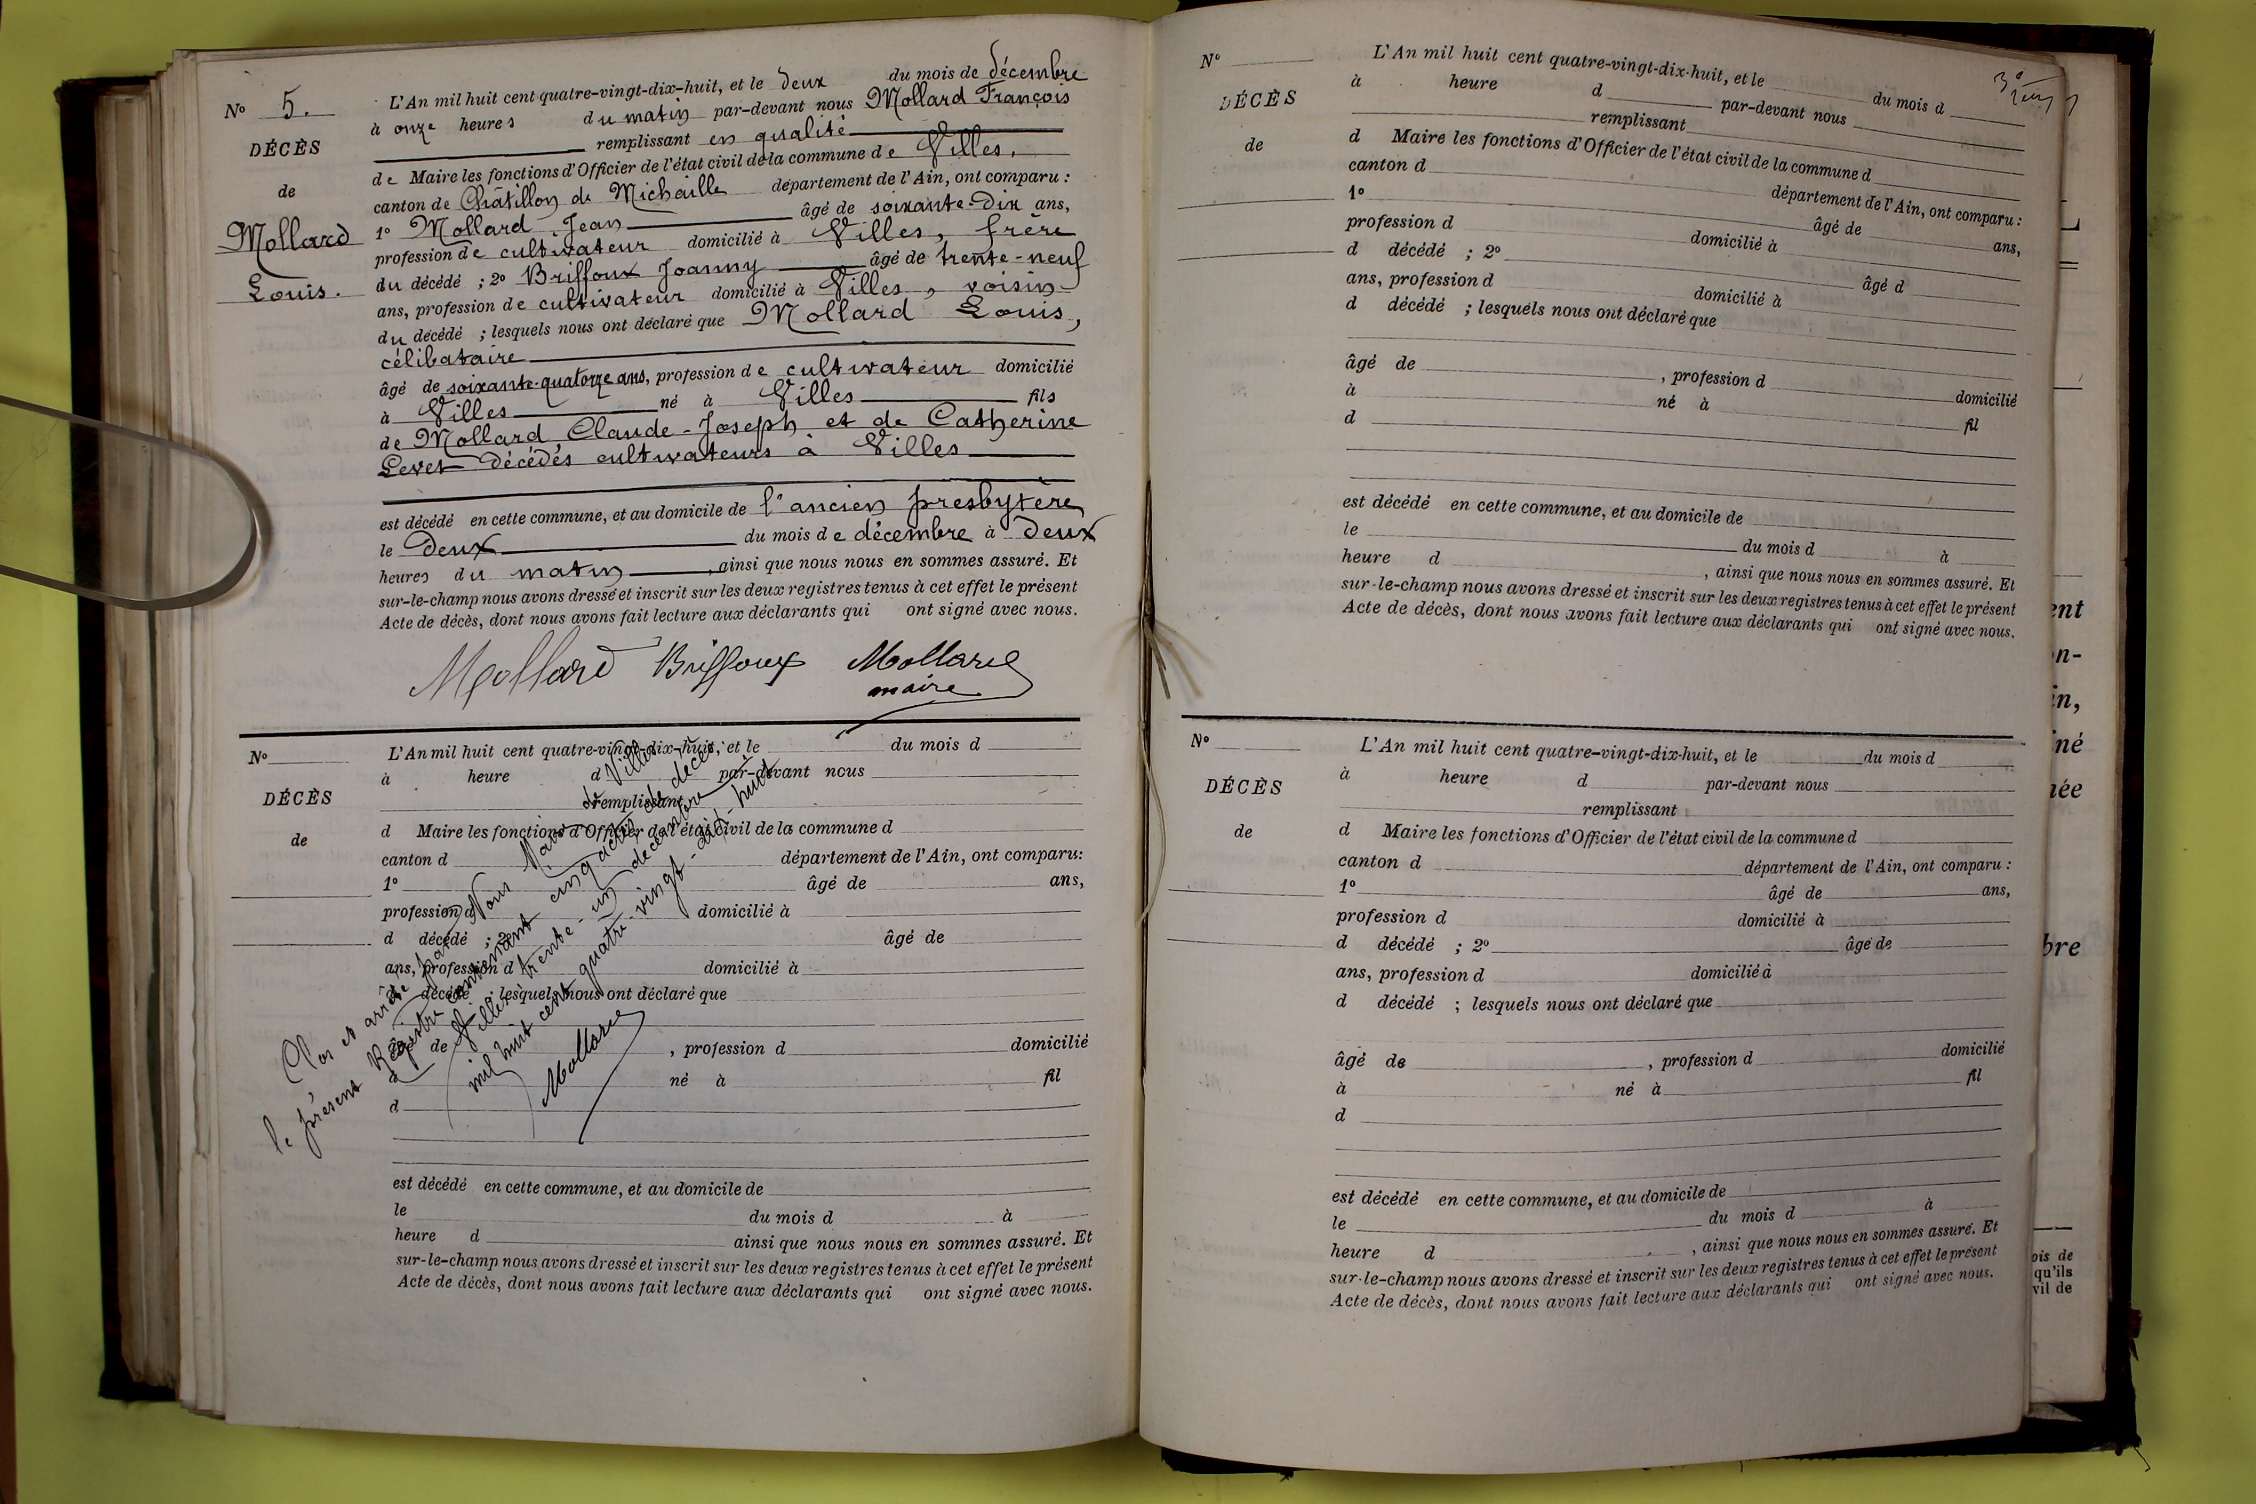 N° 5.
DÉCÈS
de
Mollard
Louis.
L'An mil huit cent quatre-vingt-dix-huit, et le deux du mois de décembre
à onze heures du matin par-devant nous Mollard François
remplissant en qualité
de Maire les fonctions d'Officier de l'état civil de la commune de Villes.
canton de Châtillon de Michaille département de l'Ain, ont comparu :
1° Mollard Jean âgé de soixante-dix ans,
profession de cultivateur domicilié à Villes, frère
du décédé ; 2° Briffoux Joanny âgé de trente-neuf
ans, profession de cultivateur domicilié à Villes, voisin
du décédé ; lesquels nous ont déclaré que Mollard Louis,
célibataire
âgé de soixante-quatorze ans, profession de cultivateur domicilié
à Villes né à Villes fils
de Mollard Claude-Joseph et de Catherine
Levet décédés cultivateurs à Villes
est décédé en cette commune, et au domicile de l'ancien presbytère
le deux du mois de décembre à deux
heures du matin, ainsi que nous nous en sommes assuré. Et
sur-le-champ nous avons dressé et inscrit sur les deux registres tenus à cet effet le présent
Acte de décès, dont nous avons fait lecture aux déclarants qui ont signé avec nous.
Mollard Briffoux Mollard
maire
N°
DÉCÈS
de
L'An mil huit cent quatre-vingt-dix-huit, et le du mois d
à heure d par-devant nous
remplissant
d Maire les fonctions d'Officier de l'état civil de la commune d
canton d département de l'Ain, ont comparu:
1° âgé de ans,
profession d domicilié à
d décédé ; 2° âgé de
ans, profession d domicilié à
d décédé ; lesquels nous ont déclaré que
âgé de , profession d domicilié
à né à fil
d
est décédé en cette commune, et au domicile de
le du mois d à
heure d ainsi que nous nous en sommes assuré. Et
sur-le-champ nous avons dressé et inscrit sur les deux registres tenus à cet effet le présent
Acte de décès, dont nous avons fait lecture aux déclarants qui ont signé avec nous.
Clos et arrêté par Nous Maire de Villes
le présent Registre contenant cinq actes de décès.
Villes trente-un décembre
mil huit cent quatre-vingt-dix-huit
Mollard
3°
N°
DÉCÈS
de
L'An mil huit cent quatre-vingt-dix-huit, et le du mois d
à heure d par-devant nous
remplissant
d Maire les fonctions d'Officier de l'état civil de la commune d
canton d département de l'Ain, ont comparu :
1° âgé de ans,
profession d domicilié à
d décédé ; 2° âgé d
ans, profession d domicilié à
d décédé ; lesquels nous ont déclaré que
âgé de , profession d domicilié
à né à fil
d
est décédé en cette commune, et au domicile de
le du mois d à
heure d , ainsi que nous nous en sommes assuré. Et
sur-le-champ nous avons dressé et inscrit sur les deux registres tenus à cet effet le présent
Acte de décès, dont nous avons fait lecture aux déclarants qui ont signé avec nous.
N°
DÉCÈS
de
L'An mil huit cent quatre-vingt-dix-huit, et le du mois d
à heure d par-devant nous
remplissant
d Maire les fonctions d'Officier de l'état civil de la commune d
canton d département de l'Ain, ont comparu :
1° âgé de ans,
profession d domicilié à
d décédé ; 2° âgé de
ans, profession d domicilié à
d décédé ; lesquels nous ont déclaré que
âgé de , profession d domicilié
à né à fil
d
est décédé en cette commune, et au domicile de
le du mois d à
heure d , ainsi que nous nous en sommes assuré. Et
sur-le-champ nous avons dressé et inscrit sur les deux registres tenus à cet effet le présent
Acte de décès, dont nous avons fait lecture aux déclarants qui ont signé avec nous.
ent
on-
in,
né
née
bre
ois de
qu'ils
vil de